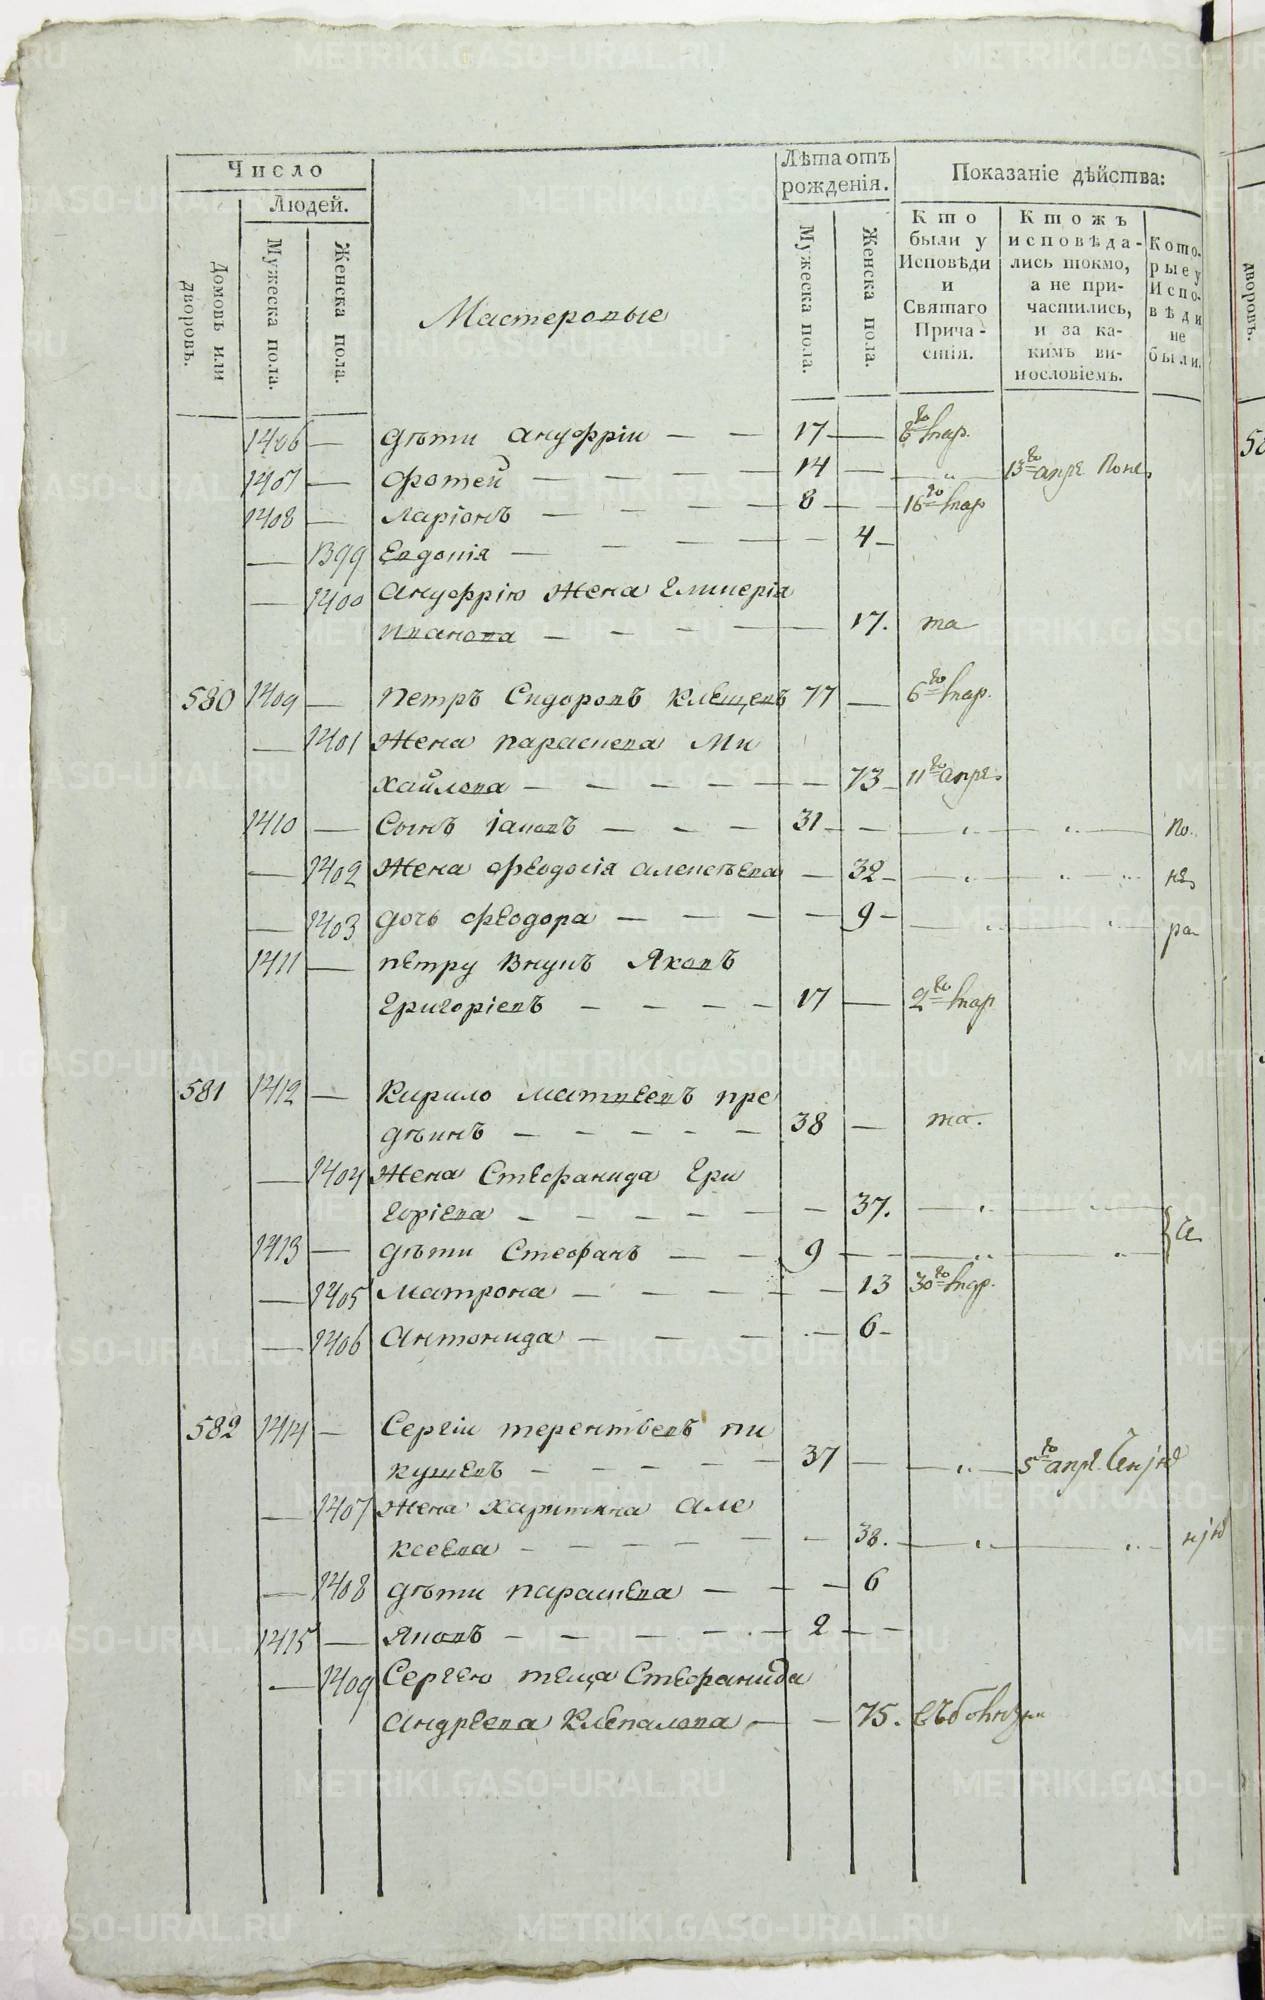 Число
Людей.
Домовъ или дворовъ.
Мужеска пола.
Женска пола.
Мастеровые
Лѣта отъ рожденія.
Мужеска пола.
Женска пола.
Показаніе дѣйства:
Кто были у Исповѣди и Святаго Причастія.
Ктожъ исповѣдались токмо, а не причастились, и за какимъ винословіемъ.
Которые у Исповѣди не были.
дворовъ.
1406 — дѣти Ануфріи — — 17 —
1407 — Фотей — — — 14 — 13го апре
1408 — Ларіонъ — — — 8 — — 16го
— 1399 Евдокія — — — — — 4 —
— 1400 Ануфрію жена Глиперія
Иванова — — — — — 17. та
580 1409 — Петръ Сидоровъ Клещевъ 77 — 6го
— 1401 Жена Параскева Ми
хайлова — — — — — — 73 — 11го апре
1410 — Сынъ Іаковъ — — — 31 — — по
— 1402 Жена Феодосія Алексѣева — 32 — не
— 1403 дочь Феодора — — — — — 9 — ра
1411 — Петру внукъ Яковъ
Григоріевъ — — — — 17 — 2го
581 1412 — Кирило Матвеевъ Пре
дѣинъ — — — — — 38 — та.
— 1404 Жена Стефанида Гри
горіева — — — — — — 37.
1413 — дѣти Стефанъ — — 9 —
— 1405 Матрона — — — — — 13 30го
— 1406 Антонида — — — — 6 —
582 1414 — Сергіи Терентьевъ Пи
кушевъ — — — — — 37 — 5го апре.
— 1407 Жена Харитина Але
ксеева — — — — — — 38.
— 1408 дѣти Параскева — — — 6
1415 — Яковъ — — — — — 2 — —
— 1409 Сергею теща Стефанида
Андреева Клепалова — — 75.
METRIKI.GASO-URAL.RU